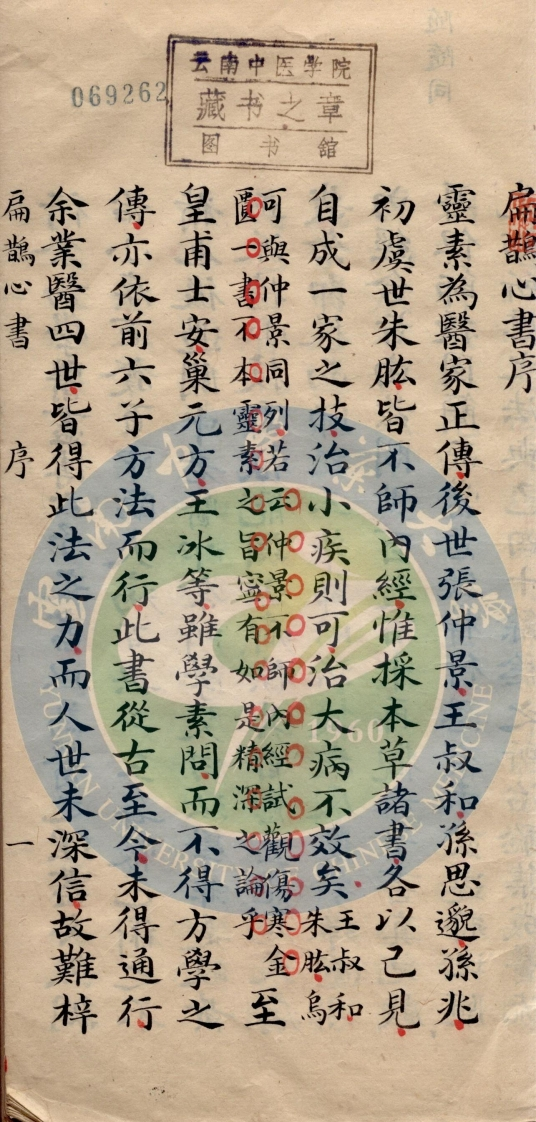 云南中医学院
藏书之章
图书舘
069262
扁鵲心書序
靈素為醫家正傳後世張仲景王叔和孫思邈孫兆
初虞世朱肱皆不師內經惟採本草諸書各以己見
自成一家之技治小疾則可治大病不效矣王叔和
朱肱烏
可與仲景同列若云仲景不師內經試觀傷寒金
匱一書不本靈素之旨寧有如是精深之論乎至
皇甫士安巢元方王冰等雖學素問而不得方學之
傳亦依前六子方法而行此書從古至今未得通行
余業醫四世皆得此法之力而人世未深信故難梓
扁鵲心書 序 一
1960
YUNNAN UNIVERSITY OF CHINESE MEDICINE